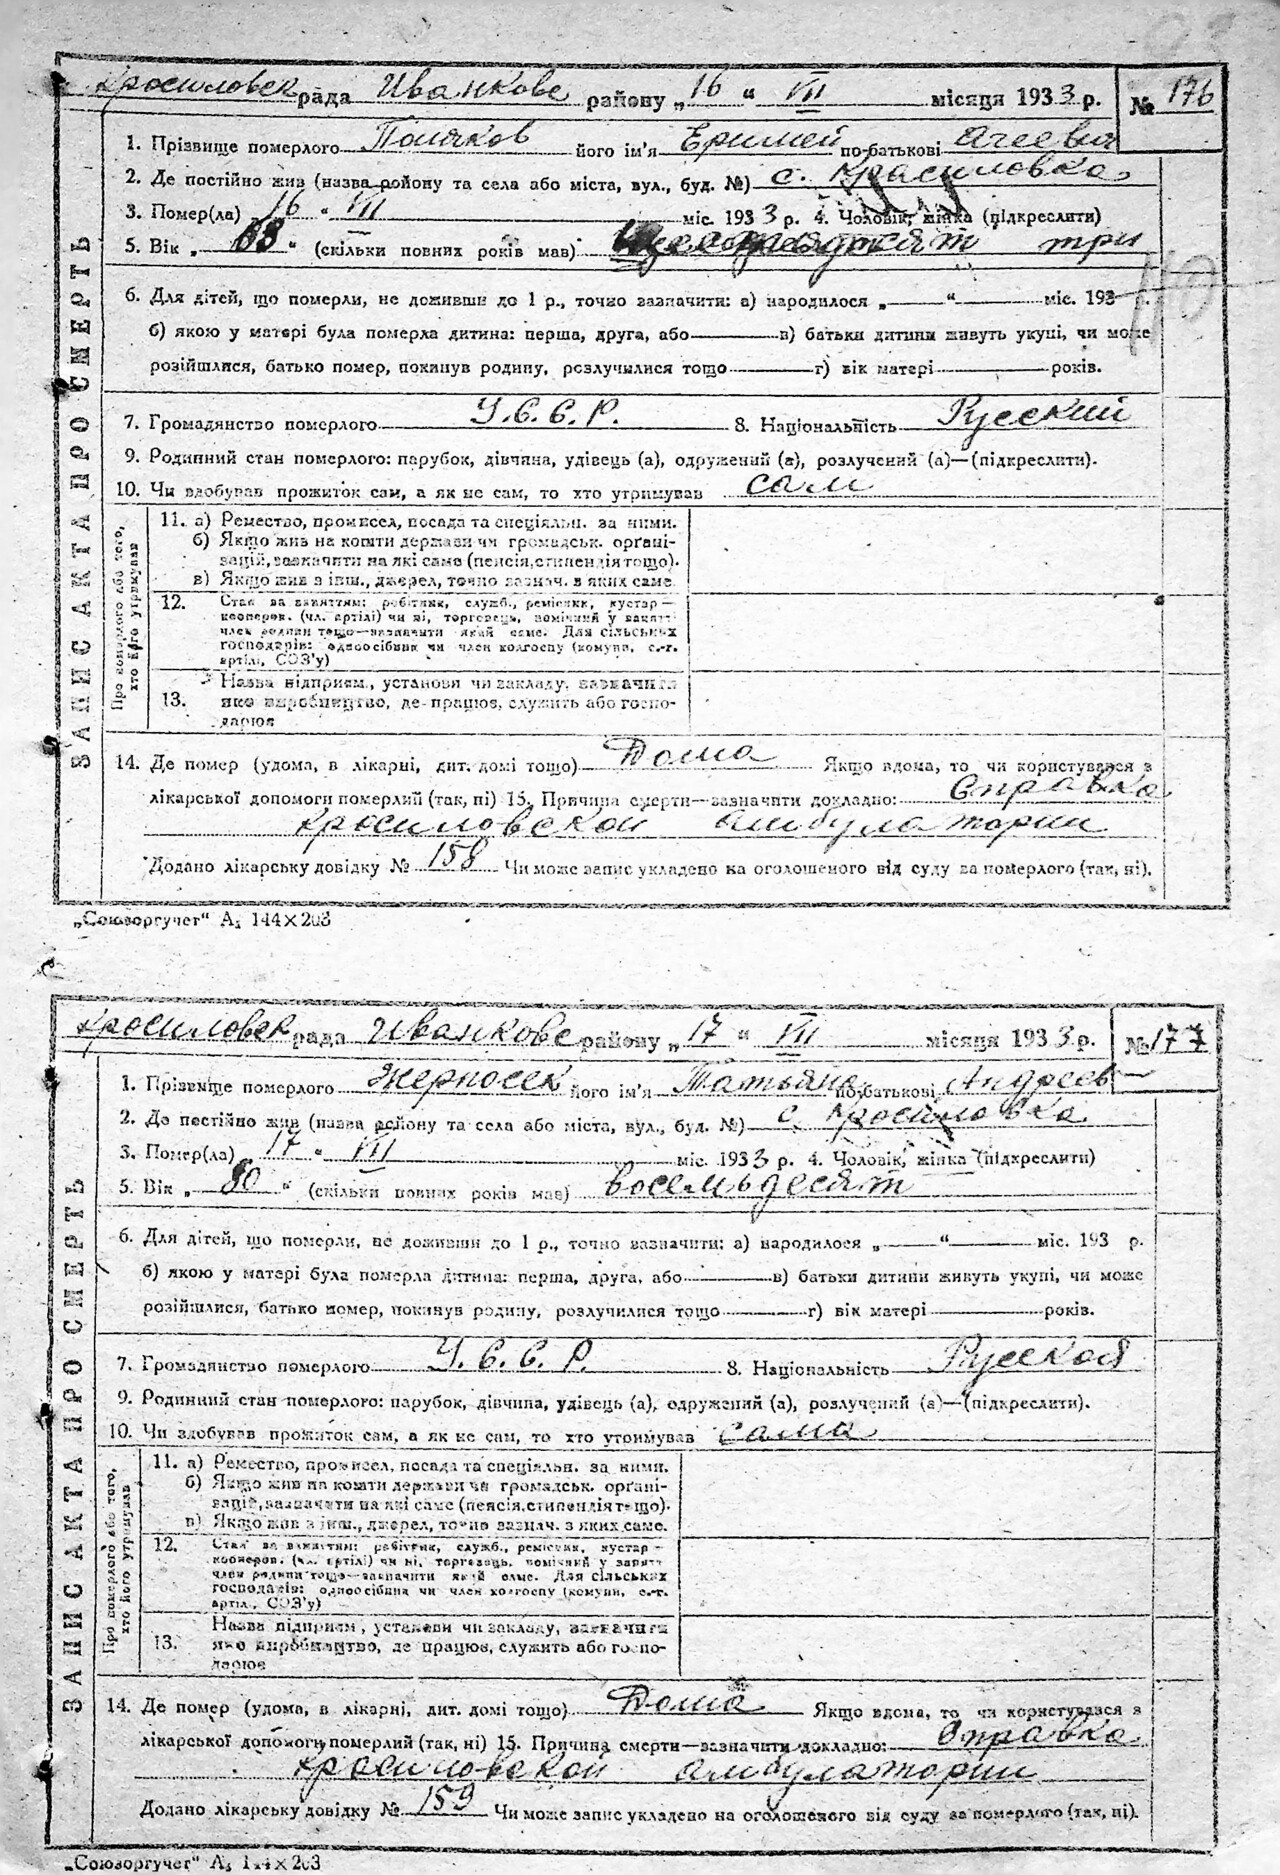 Красиловск рада Иванкове району „16“ VII місяця 1933 р. № 176
1. Прізвище померлого Поляков його ім'я Еримей по-батькові Агеевич
2. Де постійно жив (назва району та села або міста, вул., буд. №) с. Красиловка
3. Помер(ла) 16 “ VII міс. 1933 р. 4. Чоловік, жінка (підкреслити)
5. Вік „ 63 “ (скільки повних років мав) три
6. Для дітей, що померли, не доживши до 1 р., точно зазначити: а) народилося „ “ міс. 193 р.
б) якою у матері була померла дитина: перша, друга, або в) батьки дитини живуть укупі, чи може
розійшлися, батько помер, покинув родину, розлучилися тощо г) вік матері років.
7. Громадянство померлого У.С.С.Р. 8. Національність Русский
9. Родинний стан померлого: парубок, дівчина, удівець (а), одружений (а), розлучений (а)—(підкреслити).
10. Чи здобував прожиток сам, а як не сам, то хто утримував сам
ЗАПИС АКТА ПРО СМЕРТЬ
Про померлого або того, хто його утримував
11. а) Ремество, промисел, посада та спеціяльн. за ними.
б) Якщо жив на кошти держави чи громадськ. орґані-
зацій, зазначити на які саме (пенсія, стипендія тощо).
в) Якщо жив з інш., джерел, точно зазнач. в яких саме.
12. Стан за заняттям: робітник, служб., ремісник, кустар—
кооперов. (чл. артілі) чи ні, торговець, помічний у занятт
член родини тощо—зазначити який саме. Для сільських
господарів: одноосібник чи член колгоспу (комуни, с.-г.
артілі, СОЗ'у)
13. Назва підприям., установи чи закладу, зазначити
яке виробництво, де працює, служить або госпо-
дарює
14. Де помер (удома, в лікарні, дит. домі тощо) Дома Якщо вдома, то чи користувався з
лікарської допомоги померлий (так, ні) 15. Причина смерти—зазначити докладно: Справка
Красиловской амбулатории
Додано лікарську довідку № 158 Чи може запис укладено на оголошеного від суду за померлого (так, ні).
„Союзоргучет“ А₅ 144×203
Красиловск рада Иванкове району „17“ VII місяця 1933 р. № 177
1. Прізвище померлого Жерносек його ім'я Татьяна по-батькові Андреев
2. Де постійно жив (назва району та села або міста, вул., буд. №) с. Красиловка
3. Помер(ла) 17 “ VII міс. 1933 р. 4. Чоловік, жінка (підкреслити)
5. Вік „ 80 “ (скільки повних років мав) восемьдесят
6. Для дітей, що померли, не доживши до 1 р., точно зазначити: а) народилося „ “ міс. 193 р.
б) якою у матері була померла дитина: перша, друга, або в) батьки дитини живуть укупі, чи може
розійшлися, батько помер, покинув родину, розлучилися тощо г) вік матері років.
7. Громадянство померлого У.С.С.Р. 8. Національність Русской
9. Родинний стан померлого: парубок, дівчина, удівець (а), одружений (а), розлучений (а)—(підкреслити).
10. Чи здобував прожиток сам, а як не сам, то хто утримував сама
ЗАПИС АКТА ПРО СМЕРТЬ
Про померлого або того, хто його утримував
11. а) Ремество, промисел, посада та спеціяльн. за ними.
б) Якщо жив на кошти держави чи громадськ. орґані-
зацій, зазначити на які саме (пенсія, стипендія тощо).
в) Якщо жив з інш., джерел, точно зазнач. з яких саме.
12. Стан за заняттям: робітник, служб., ремісник, кустар—
кооперов. (чл. артілі) чи ні, торговець, помічний у занятт
член родини тощо—зазначити який саме. Для сільських
господарів: одноосібник чи член колгоспу (комуни, с.-г.
артілі, СОЗ'у)
13. Назва підприям., установи чи закладу, зазначити
яке виробництво, де працює, служить або госпо-
дарює
14. Де помер (удома, в лікарні, дит. домі тощо) Дома Якщо вдома, то чи користувався з
лікарської допомоги померлий (так, ні) 15. Причина смерти—зазначити докладно: Справка
Красиловской амбулатории
Додано лікарську довідку № 159 Чи може запис укладено на оголошеного від суду за померлого (так, ні).
„Союзоргучет“ А₅ 144×203